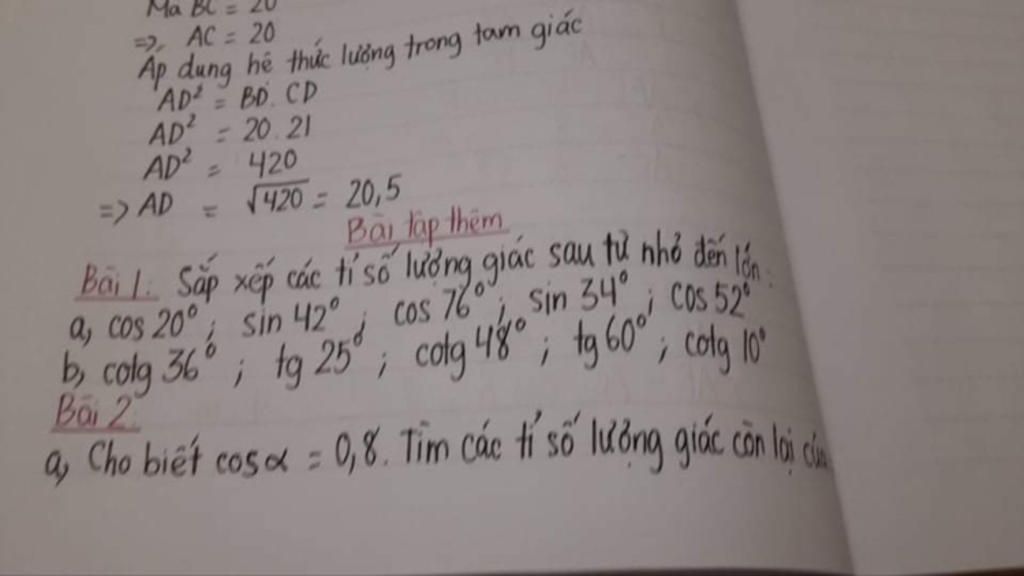 Mà BC = 20
=> AC = 20
Áp dụng hệ thức lượng trong tam giác
AD² = BD. CD
AD² = 20. 21
AD² = 420
=> AD = √420 = 20,5
Bài tập thêm
Bài 1: Sắp xếp các tỉ số lượng giác sau từ nhỏ đến lớn:
a, cos 20°; sin 42°; cos 76°; sin 34°; cos 52°
b, cotg 36°; tg 25°; cotg 48°; tg 60°; cotg 10°
Bài 2:
a, Cho biết cosα = 0,8. Tìm các tỉ số lượng giác còn lại của